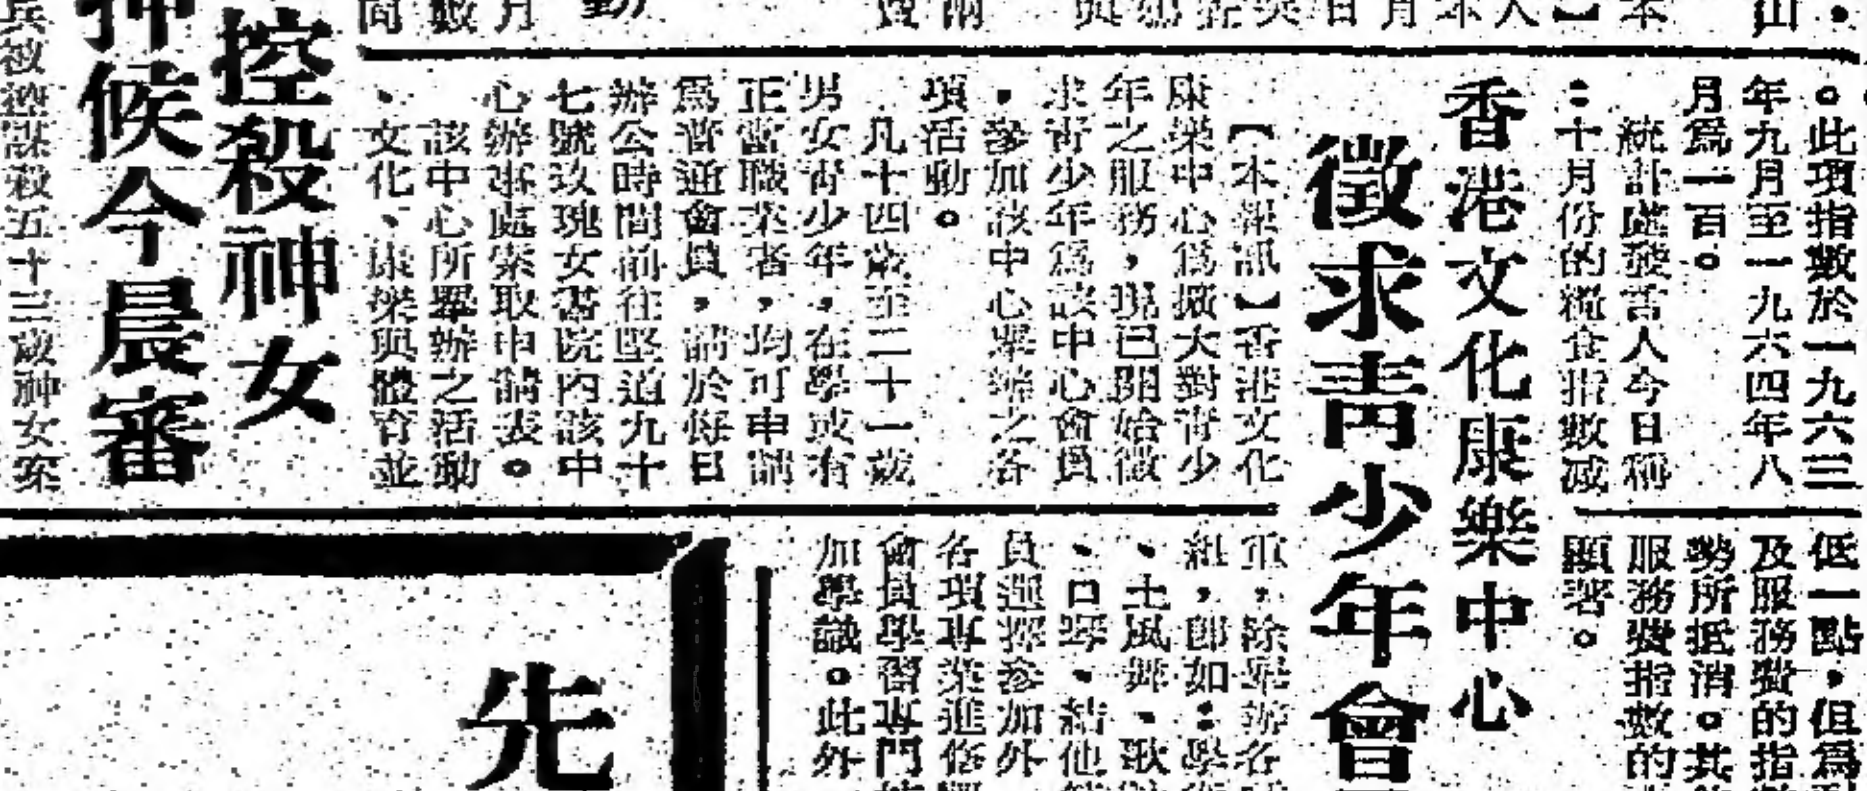 。此項指數於一九六三
年九月至一九六四年八
月為一百。
統計處發言人今日稱
：十月份的糧食指數減
低一點，但為
及服務費的指
勢所抵消。其
服務費指數的
顯著。
香港文化康樂中心
徵求青少年會
【本報訊】香港文化
康樂中心為擴大對青少
年之服務，現已開始徵
求青少年為該中心會員
，參加該中心舉辦之各
項活動。
凡十四歲至二十一歲
男女青少年，在學或有
正當職業者，均可申請
為普通會員，請於每日
辦公時間前往堅道九十
七號玫瑰女書院內該中
心辦事處索取申請表。
該中心所舉辦之活動
、文化、康樂與體育並
重，除舉辦各
組，即如：學
、土風舞、歌
、口琴、結他
員選擇參加外
各項專業進修
會員研習專門
加學識。此外
控殺神女
候今晨審
兵被控謀殺五十三歲神女案
先